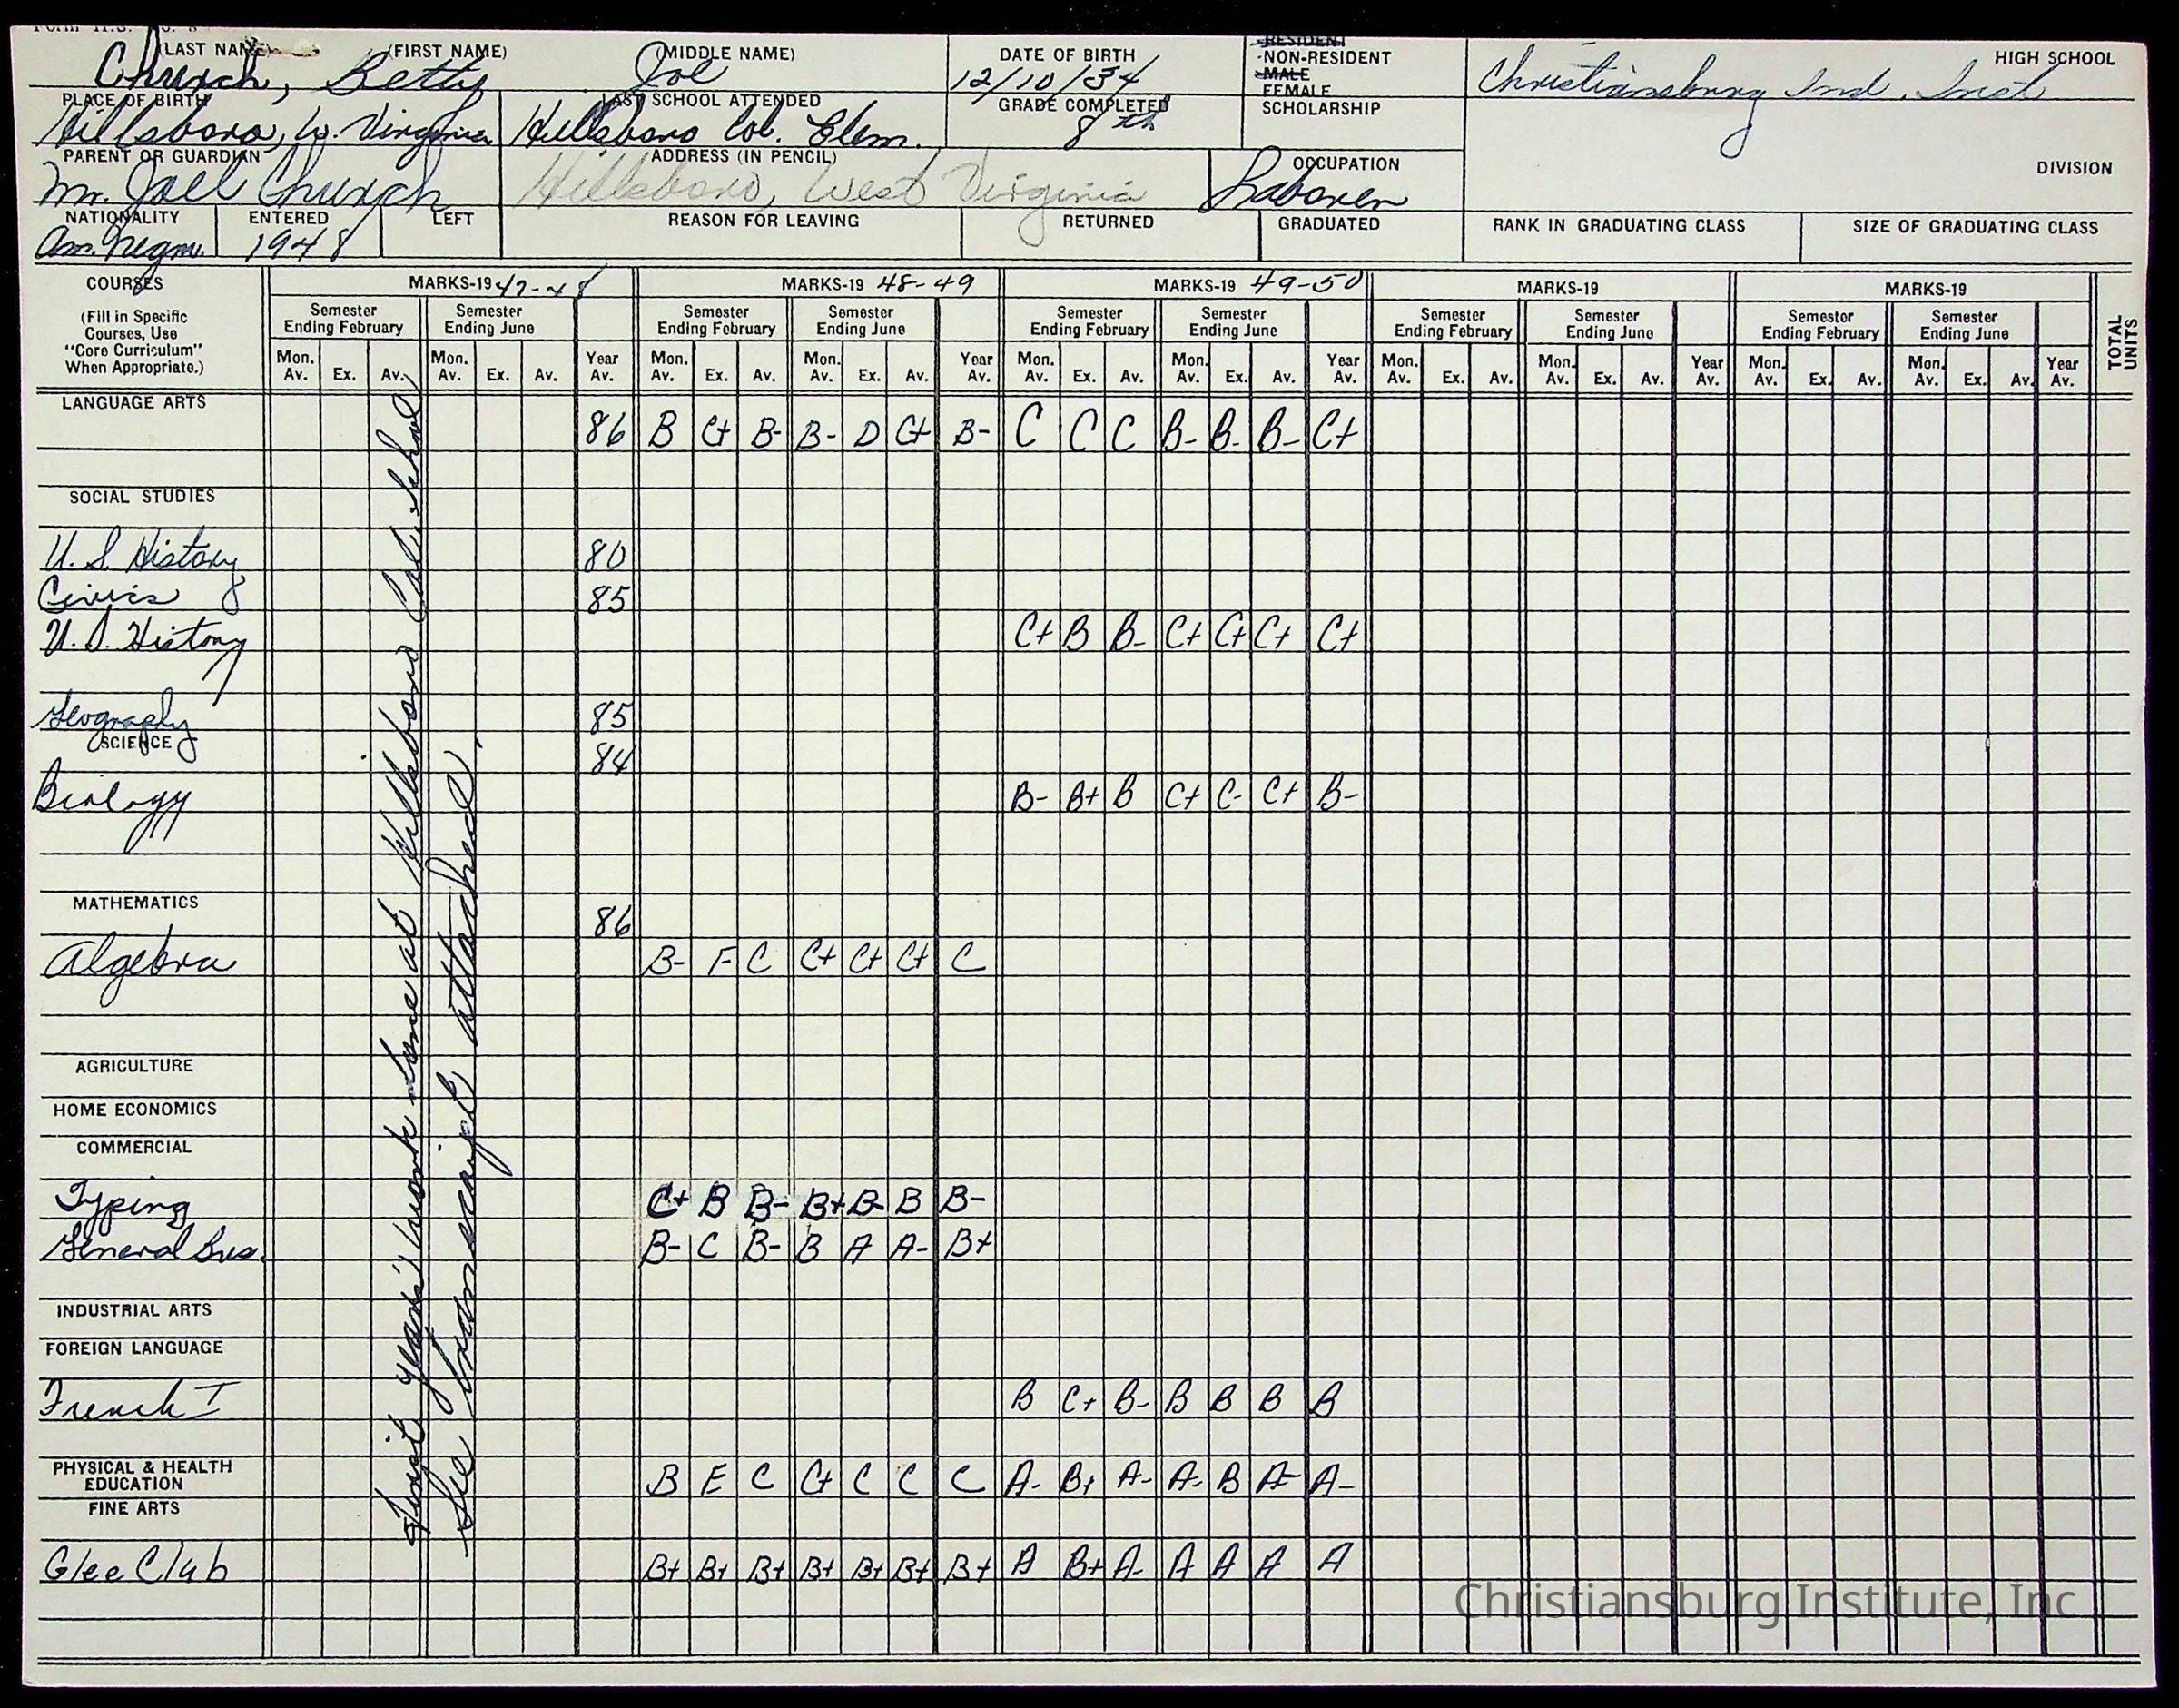 Form H.S.
(LAST NAME) (FIRST NAME) (MIDDLE NAME) DATE OF BIRTH RESIDENT HIGH SCHOOL
Church, Betty Joe 12/10/34 NON-RESIDENT Christiansburg Ind. Inst
MALE
FEMALE
PLACE OF BIRTH LAST SCHOOL ATTENDED GRADE COMPLETED SCHOLARSHIP
Hillsboro, W. Virginia Hillsboro Col. Elem. 8th
PARENT OR GUARDIAN ADDRESS (IN PENCIL) OCCUPATION DIVISION
Mr. Joel Church Hillsboro, West Virginia Laborer
NATIONALITY ENTERED LEFT REASON FOR LEAVING RETURNED GRADUATED RANK IN GRADUATING CLASS SIZE OF GRADUATING CLASS
Am. Negro. 1948
COURSES MARKS-1947-48 MARKS-19 48-49 MARKS-19 49-50 MARKS-19 MARKS-19
(Fill in Specific Semester Semester Semester Semester Semester Semester Semester Semester Semester Semester
Courses, Use Ending February Ending June Ending February Ending June Ending February Ending June Ending February Ending June Ending February Ending June TOTAL UNITS
"Core Curriculum" Mon. Mon. Year Mon. Mon. Year Mon. Mon. Year Mon. Mon. Year Mon. Mon. Year
When Appropriate.) Av. Ex. Av. Av. Ex. Av. Av. Av. Ex. Av. Av. Ex. Av. Av. Av. Ex. Av. Av. Ex. Av. Av. Av. Ex. Av. Av. Ex. Av. Av. Av. Ex. Av. Av. Ex. Av. Av.
LANGUAGE ARTS
86 B C+ B- B- D C+ B- C C C B- B- B- C+
SOCIAL STUDIES
U. S. History 80
Civics 85
U. S. History C+ B B- C+ C+ C+ C+
Geography 85
SCIENCE 84
Biology B- B+ B C+ C- C+ B-
MATHEMATICS 86
Algebra B- F C C+ C+ C+ C
AGRICULTURE
HOME ECONOMICS
COMMERCIAL
Typing C+ B B- B+ B- B B-
General Bus. B- C B- B A A- B+
INDUSTRIAL ARTS
FOREIGN LANGUAGE
French I B C+ B- B B B B
PHYSICAL & HEALTH
EDUCATION B E C C+ C C C A- B+ A- A- B A- A-
FINE ARTS
Glee Club B+ B+ B+ B+ B+ B+ B+ A B+ A- A A A A
First year's work done at Hillsboro Col. School
See transcript attached.
Christiansburg Institute, Inc